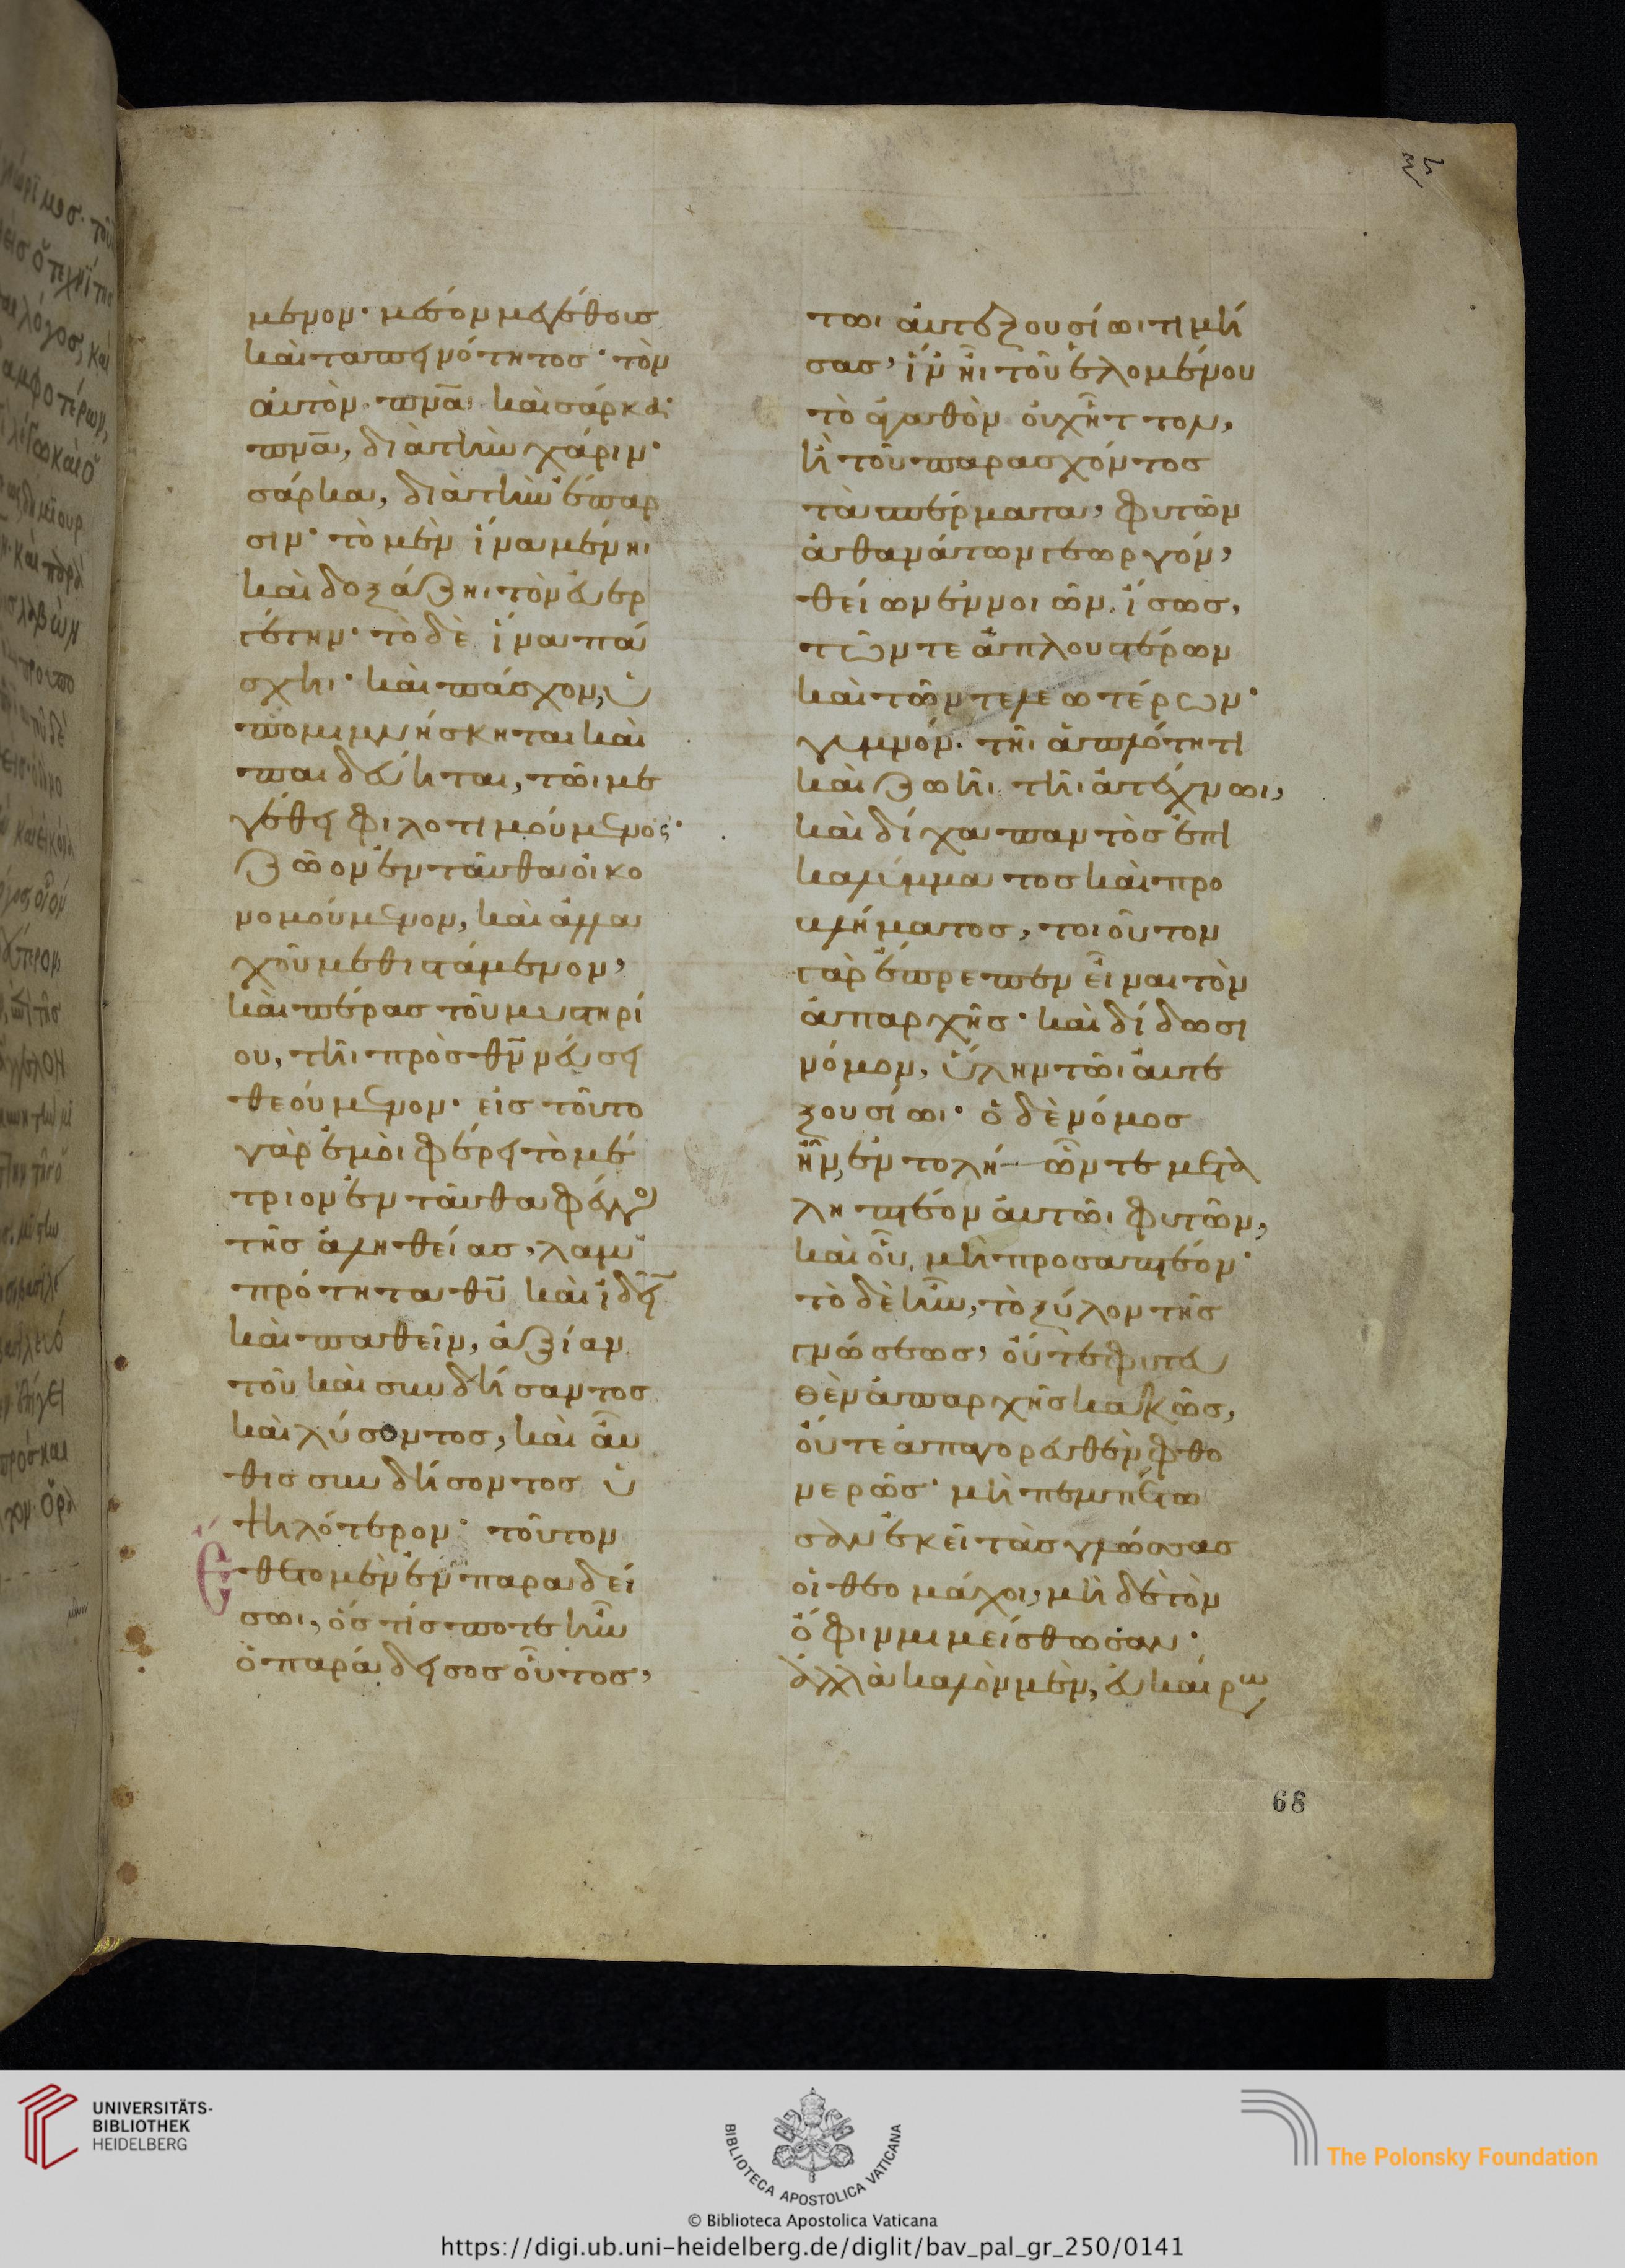 μενον· μέσον μεγέθους
καὶ ταπεινότητος· τὸν
αὐτὸν πν̅α καὶ σάρκα·
πν̅α, διὰ τὴν χάριν·
σάρκα, διὰ τὴν ἔπαρ
σιν· τὸ μὲν ἵνα μένηι
καὶ δοξάζηι τὸν εὐερ
γέτην· τὸ δὲ ἵνα πά
σχηι· καὶ πάσχον, ὑ
πομιμνήσκηται καὶ
παιδεύηται, τῶι με
γέθει φιλοτιμούμενος·
ζῶον ἐνταῦθα οἰκο
νομούμενον, καὶ ἀλλα
χοῦ μεθιστάμενον,
καὶ πέρας τοῦ μυστηρί
ου, τῆι πρὸς θν̅ νεύσει
θεούμενον· εἰς τοῦτο
γὰρ ἐμοὶ φέρει τὸ μέ
τριον ἐνταῦθα φέγγος
τῆς ἀληθείας, λαμ
πρότητα θυ̅ καὶ ἰδεῖν
καὶ παθεῖν, ἀξίαν
τοῦ καὶ συνδήσαντος
καὶ λύσοντος, καὶ αὖ
θις συνδήσοντος ὑ
ψηλότερον· τοῦτον
ἔθετο μὲν ἐν παραδεί
σωι, ὅς τίς ποτε ἦν
ὁ παράδεισος οὗτος,
τῶι αὐτεξουσίωι τιμή
σας, ἵν ἦι τοῦ ἑλομένου
τὸ ἀγαθὸν οὐχ ἧττον,
ἢ τοῦ παρασχόντος
τὰ σπέρματα, φυτῶν
ἀθανάτων γεωργόν,
θείων ἐννοιῶν ἴσως,
τῶν τε ἁπλουστέρων
καὶ τῶν τελεωτέρων·
γυμνόν τῆι ἁπλότητι
καὶ ζωῆι τῆι ἀτέχνωι,
καὶ δίχα παντὸς ἐπι
καλύμματος καὶ προ
βλήματος, τοιοῦτον
γὰρ ἔπρεπεν εἶναι τὸν
ἀπαρχῆς· καὶ δίδωσι
νόμον, ὕλην τῶι αὐτε
ξουσίωι· ὁ δὲ νόμος
ἦν, ἐντολὴ ὧν τε μετα
ληπτέον αὐτῶι φυτῶν,
καὶ οὗ μὴ προσαπτέον·
τὸ δὲ ἦν, τὸ ξύλον τῆς
γνώσεως, οὔτε φυτευ
θὲν ἀπαρχῆς κακῶς,
οὔτε ἀπαγορευθὲν φθο
νερῶς· μὴ πεμπέτω
σαν ἐκεῖ τὰς γλώσσας
οἱ θεομάχοι, μὴ δὲ τὸν
ὄφιν μιμείσθωσαν·
ἀλλὰ καλὸν μὲν, εὐκαίρω
68
UNIVERSITÄTS-
BIBLIOTHEK
HEIDELBERG
BIBLIOTECA APOSTOLICA VATICANA
The Polonsky Foundation
© Biblioteca Apostolica Vaticana
https://digi.ub.uni-heidelberg.de/diglit/bav_pal_gr_250/0141